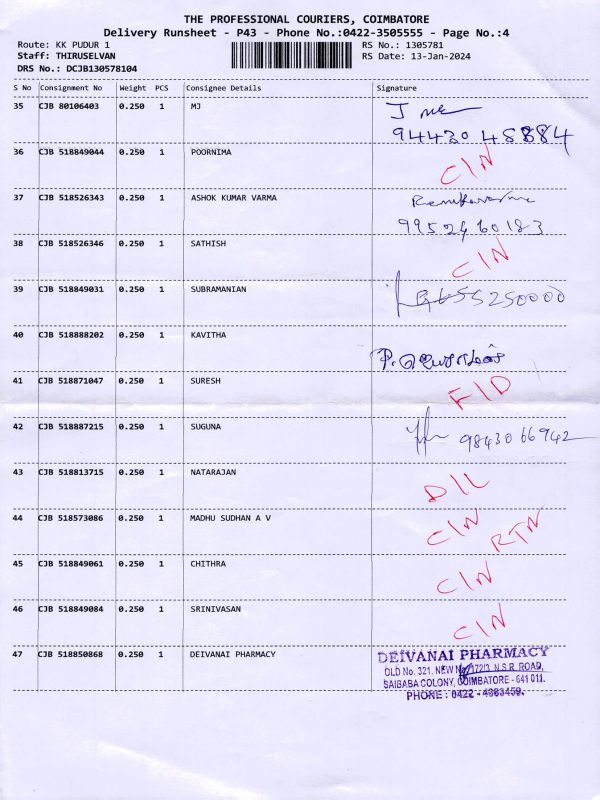 THE PROFESSIONAL COURIERS, COIMBATORE
Delivery Runsheet - P43 - Phone No.:0422-3505555 - Page No.:4
Route: KK PUDUR 1 RS No.: 1305781
Staff: THIRUSELVAN RS Date: 13-Jan-2024
DRS No.: DCJB130578104
S No Consignment No Weight PCS Consignee Details Signature
35 CJB 80106403 0.250 1 MJ
94430 45884
36 CJB 518849044 0.250 1 POORNIMA CIN
37 CJB 518526343 0.250 1 ASHOK KUMAR VARMA
99524 60183
38 CJB 518526346 0.250 1 SATHISH CIN
39 CJB 518849031 0.250 1 SUBRAMANIAN
40 CJB 518888202 0.250 1 KAVITHA
41 CJB 518871047 0.250 1 SURESH FID
42 CJB 518887215 0.250 1 SUGUNA 98430 66942
43 CJB 518813715 0.250 1 NATARAJAN DIL
44 CJB 518573086 0.250 1 MADHU SUDHAN A V CIN RTN
45 CJB 518849061 0.250 1 CHITHRA CIN
46 CJB 518849084 0.250 1 SRINIVASAN CIN
47 CJB 518850868 0.250 1 DEIVANAI PHARMACY DEIVANAI PHARMACY
OLD No. 321, NEW No. 172/3, N.S.R. ROAD,
SAIBABA COLONY, COIMBATORE - 641 011.
PHONE : 0422 - 4383459.